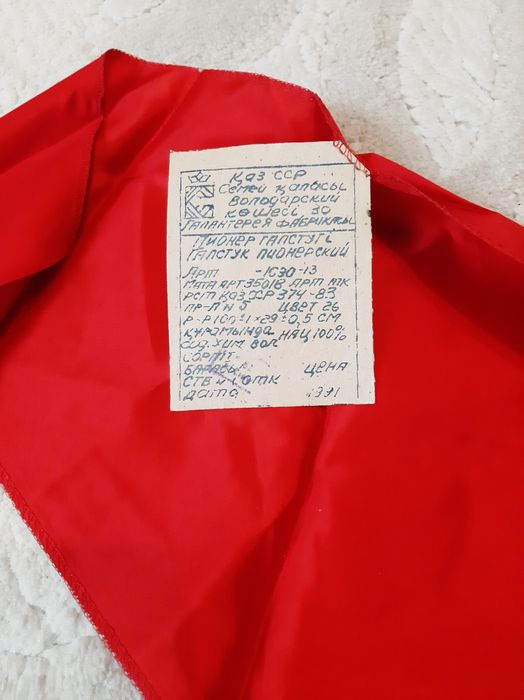 ҚАЗ ССР
СЕМЕЙ ҚАЛАСЫ
ВОЛОДАРСКИЙ
КӨШЕСІ, 30
ГАЛАНТЕРЕЯ ФАБРИКАСЫ
ПИОНЕР ГАЛСТУГІ
ГАЛСТУК ПИОНЕРСКИЙ
АРТ -1СЭО-13
МАТА АРТ 35018 АРТ МТК
РСТ ҚАЗ ССР 374-83
ПР-Т N 5 ЦВЕТ 26
Р-Р 100±1×29±0,5 СМ
ҚҰРАМЫНДА НАЦ 100%
СОД. ХИМ ВОЛ
СОРТ
БАҒАСЫ ЦЕНА
ОТК
ДАТА 1991